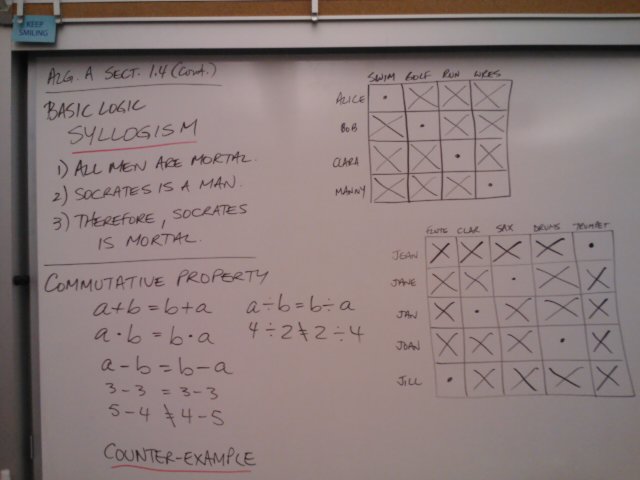 KEEP
SMILING
ALG. A SECT. 1.4 (CONT.)
BASIC LOGIC
SYLLOGISM
1) ALL MEN ARE MORTAL.
2) SOCRATES IS A MAN.
3) THEREFORE, SOCRATES
IS MORTAL.
COMMUTATIVE PROPERTY
a+b=b+a
a·b=b·a
a-b=b-a
3-3=3-3
5-4≠4-5
a÷b=b÷a
4÷2≠2÷4
COUNTER-EXAMPLE
SWIM GOLF RUN WRES
ALICE • X X X
BOB X • X X
CLARA X X • X
MANNY X X X •
FLUTE CLAR SAX DRUMS TRUMPET
JEAN X X X X •
JANE X X • X X
JAN X • X X X
JOAN X X X • X
JILL • X X X X